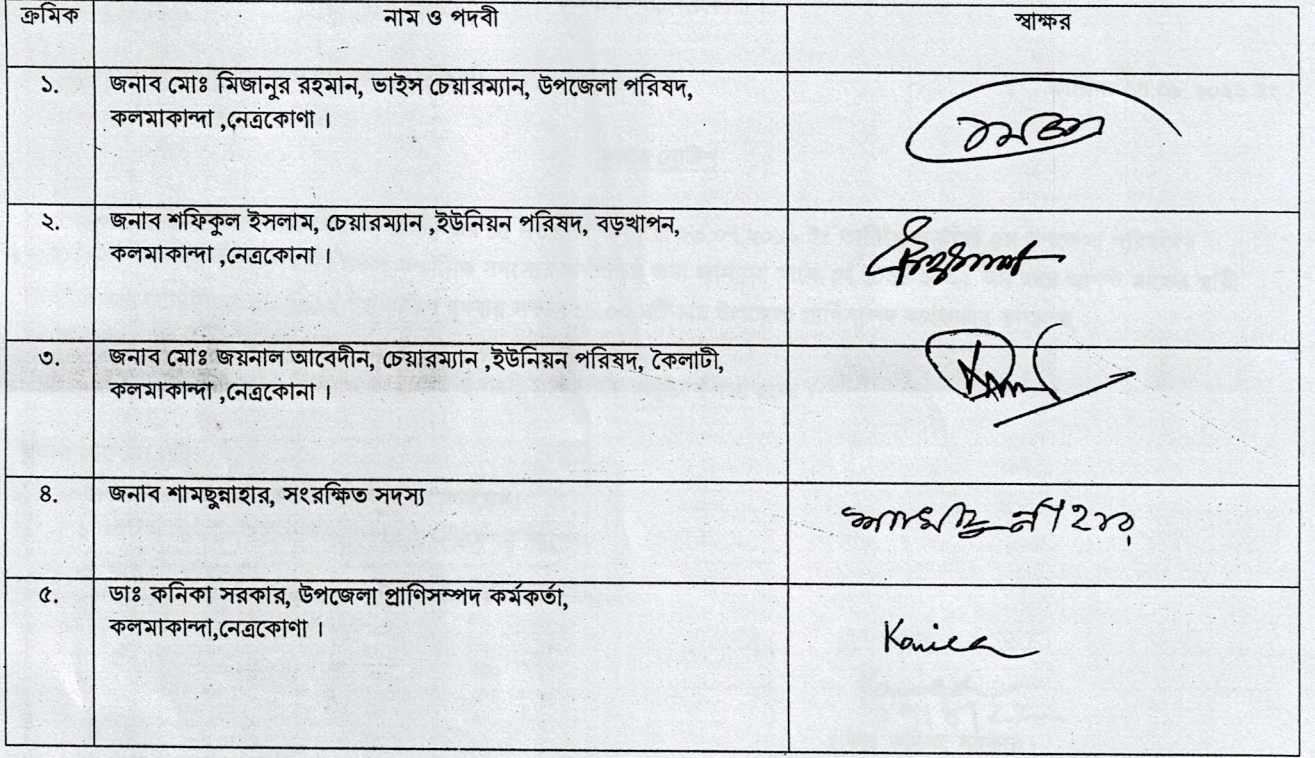 ক্রমিক নাম ও পদবী স্বাক্ষর
১. জনাব মোঃ মিজানুর রহমান, ভাইস চেয়ারম্যান, উপজেলা পরিষদ,
কলমাকান্দা ,নেত্রকোণা ।
২. জনাব শফিকুল ইসলাম, চেয়ারম্যান ,ইউনিয়ন পরিষদ, বড়খাপন,
কলমাকান্দা ,নেত্রকোনা ।
৩. জনাব মোঃ জয়নাল আবেদীন, চেয়ারম্যান ,ইউনিয়ন পরিষদ, কৈলাটী,
কলমাকান্দা ,নেত্রকোনা ।
৪. জনাব শামছুন্নাহার, সংরক্ষিত সদস্য
শামছুন্নাহার
৫. ডাঃ কনিকা সরকার, উপজেলা প্রাণিসম্পদ কর্মকর্তা,
কলমাকান্দা,নেত্রকোণা ।
Konica